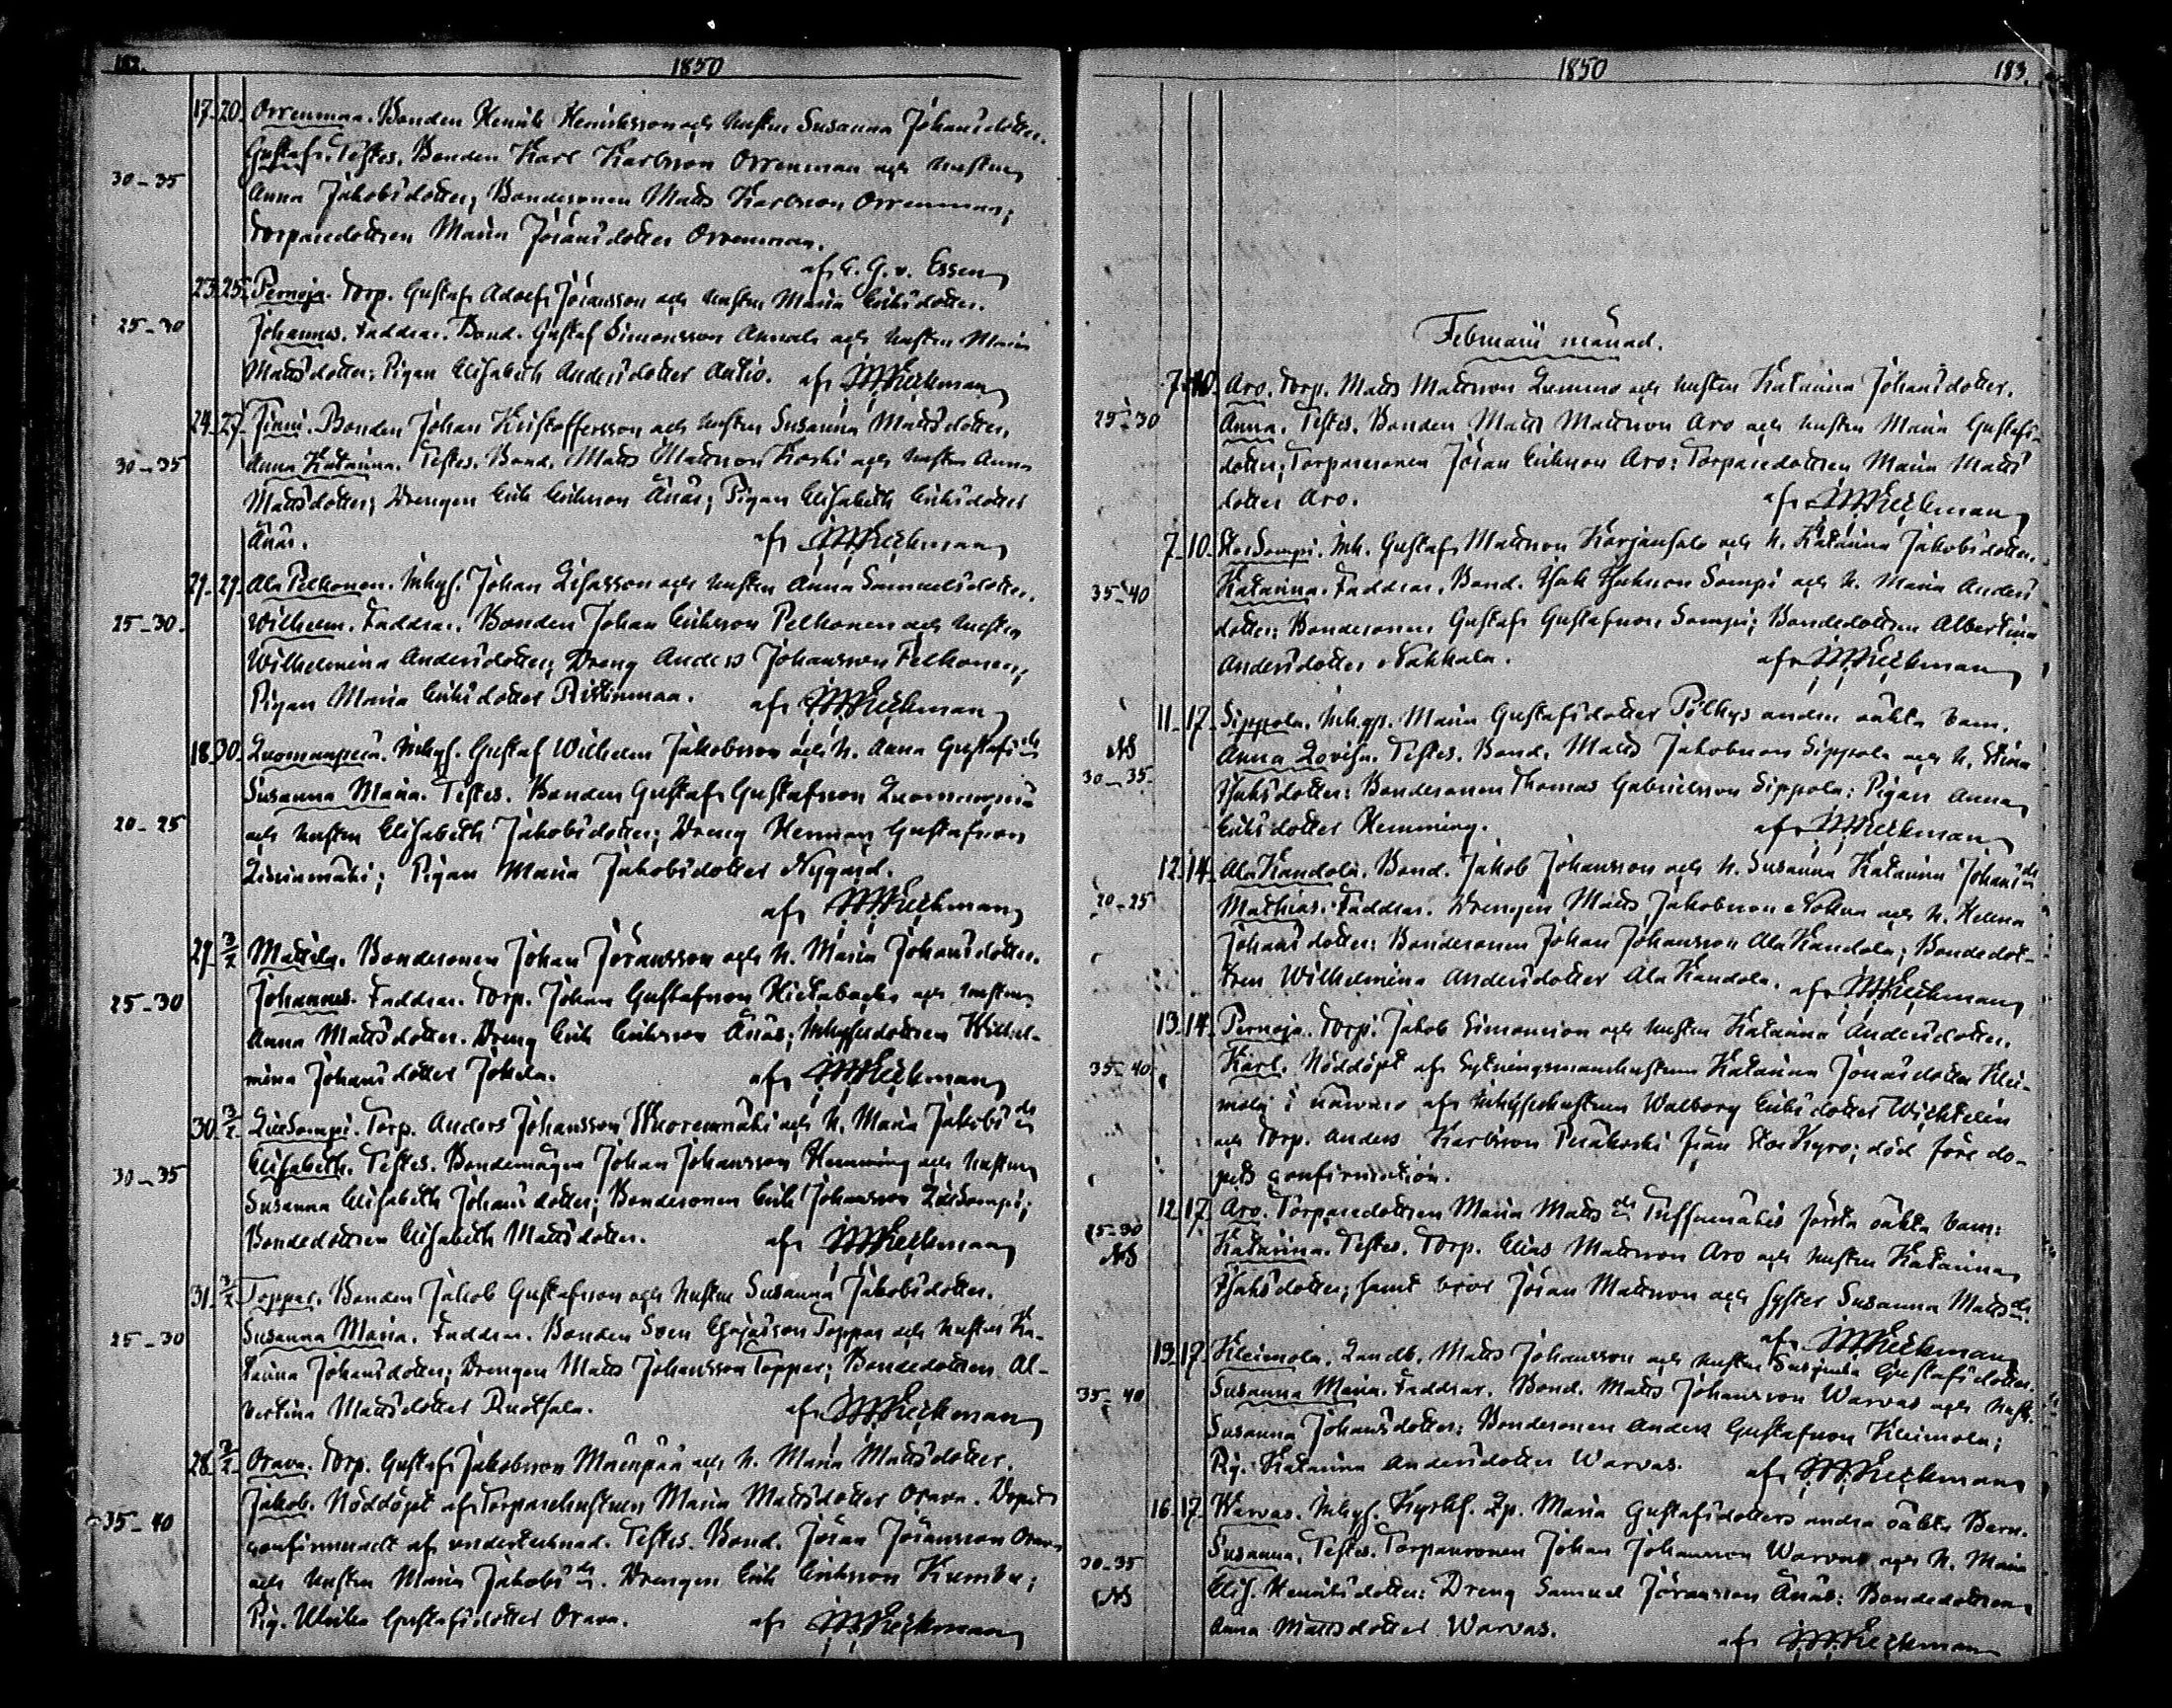 182.
1850
17. 20. Orrenmaa. Bonden Henrik Henriksson och hustru Susanna Johansdotter.
Gustaf. Testes. Bonden Karl Karlsson Orrenmaa och hustrun
30-35
Anna Jakobsdotter; Bondesonen Matts Karlsson Orrenmaa;
Torparedottren Maria Jöransdotter Orrenmaa.
af C. G. v. Essen
23. 25. Pernaja. Torp. Gustaf Adolf Jöransson och hustru Maria Eriksdotter.
25-30
Johannes. Faddrar. Bond. Gustaf Simonsson och hustru Maria
Mattsdotter; Pigan Elisabeth Andersdotter Antio. af Keckman
24. 27. Bonden Johan Kristoffersson och hustru Susanna Mattsdotter.
30-35
Anna Katarina. Testes. Bond. Matts Mattsson Koski och hustru Anna
Mattsdotter; Drengen Erik Eriksson Änäs; Pigan Elisabeth Eriksdotter
Änäs. af Keckman
27. 29. Ala Pelkonen. Inhys. Johan och hustru Anna Samuelsdotter.
25-30.
Wilhelm. Faddrar. Bonden Johan Eriksson Pelkonen och hustru
Wilhelmina Andersdotter; Dreng Anders Johansson Pelkonen;
Pigan Maria Eriksdotter Ristinmaa. af Keckman
18. 30. Inhys. Gustaf Wilhelm Jakobsson och h. Anna Gustafs dr
Susanna Maria. Testes. Bonden Gustaf Gustafsson
20-25
och hustru Elisabeth Jakobsdotter; Dreng Herman Gustafsson
Liinamäki; Pigan Maria Jakobsdotter Nygård.
af Keckman
29. 3/2 Mattila. Bondesonen Johan Jöransson och h. Maria Johansdotter.
25-30
Johannes. Faddrar. Torp. Johan Gustafsson och hustrun
Anna Mattsdotter. Dreng Erik Eriksson Änäs; Inhysesdottren Wilhel-
mina Johansdotter Jokela. af Keckman
30. 3/2 Torp. Anders Johansson Wuorenmäki och h. Maria Jakobs dr
30-35
Elisabeth. Testes. Bondemågen Johan Johansson Hemming och hustrun
Susanna Elisabeth Johansdotter; Bondesonen Erik Johansson
Bondedottren Elisabeth Mattsdotter. af Keckman
31. 3/2 Toppar. Bonden Jakob Gustafsson och hustru Susanna Jakobsdotter.
25-30
Susanna Maria. Faddrar. Bonden Sven Toppar och hustru Ka-
tarina Johansdotter; Drengen Matts Johansson Toppar; Bondedottren Al-
bertina Mattsdotter Ruotsala. af Keckman
28. 3/2 Orava. Torp. Gustaf Jakobsson Mäenpää och h. Maria Mattsdotter.
Jakob. Nöddöpt af Torparehustrun Maria Mattsdotter Orava. Dopet
35-40
confirmeradt af undertecknad. Testes. Bond. Jöran Jöransson Orava
och hustru Maria Jakobs dr. Drengen Erik Eriksson
Pig. Ulrika Gustafsdotter Orava. af Keckman
1850
183.
Februarii månad.
7. 10. Aro. Torp. Matts Mattsson Lummo och hustru Katarina Johansdotter.
25-30
Anna. Testes. Bonden Matts Mattsson Aro och hustru Maria Gustafs-
dotter; Torparesonen Jöran Eriksson Aro; Torparedottren Maria Matts
dotter Aro. af Keckman
7. 10. StorSompi. Inh. Gustaf Mattsson Karjansalo och h. Katarina Jakobsdotter.
35-40
Katarina. Faddrar. Bond. Isak Isaksson Sompi och h. Maria Anders
dotter; Bondesonen Gustaf Gustafsson Sompi; Bondedottren Albertina
Andersdotter Nahkala. af Keckman
11. 17. Sippola. Inhys. Maria Gustafsdotter andra oäkta barn.
NB
Anna Lovisa. Testes. Bond. Matts Jakobsson Sippola och h. Stina
30-35.
Isaksdotter; Bondesonen Thomas Gabrielsson Sippola; Pigan Anna
Eriksdotter Hemming. af Keckman
12. 14. Ala Kandola. Bond. Jakob Johansson och h. Susanna Katarina Johans dr
20-25
Mathias. Faddrar. Drengen Matts Jakobsson och h. Helena
Johansdotter; Bondesonen Johan Johansson Ala Kandola; Bondedot-
tren Wilhelmina Andersdotter Ala Kandola. af Keckman
13. 14. Pernaja. Torp. Jakob Simonsson och hustru Katarina Andersdotter.
35-40
Karl. Nöddöpt af Sytningsmanshustrun Katarina Jonasdotter Klei-
mola i närvaro af Inhyseshustrun Walborg Eriksdotter
och Torp. Anders Karlsson Peräkoski från StorKyro; död före do-
pets confirmation.
12. 17. Aro. Torparedottren Maria Matts dr första oäkta barn:
25-30
NB
Katarina. Testes. Torp. Elias Mattsson Aro och hustru Katarina
Isaksdotter; samt bror Jöran Mattsson och syster Susanna Matts dr.
af Keckman
13. 17. Kleimola. Landb. Matts Johansson och hustru Susanna Gustafsdotter.
35-40
Susanna Maria. Faddrar. Bond. Matts Johansson Warvas och hust.
Susanna Johansdotter; Bondesonen Anders Gustafsson Kleimola;
Pig. Katarina Andersdotter Warvas. af Keckman
16. 17. Warvas. Inhys. Maria Gustafsdotters andra oäkta Barn.
30-35
NB
Susanna. Testes. Torparesonen Johan Johansson Warvas och h. Maria
Elis. Henriksdotter; Dreng Samuel Jöransson Änäs; Bondedottren
Anna Mattsdotter Warvas. af Keckman